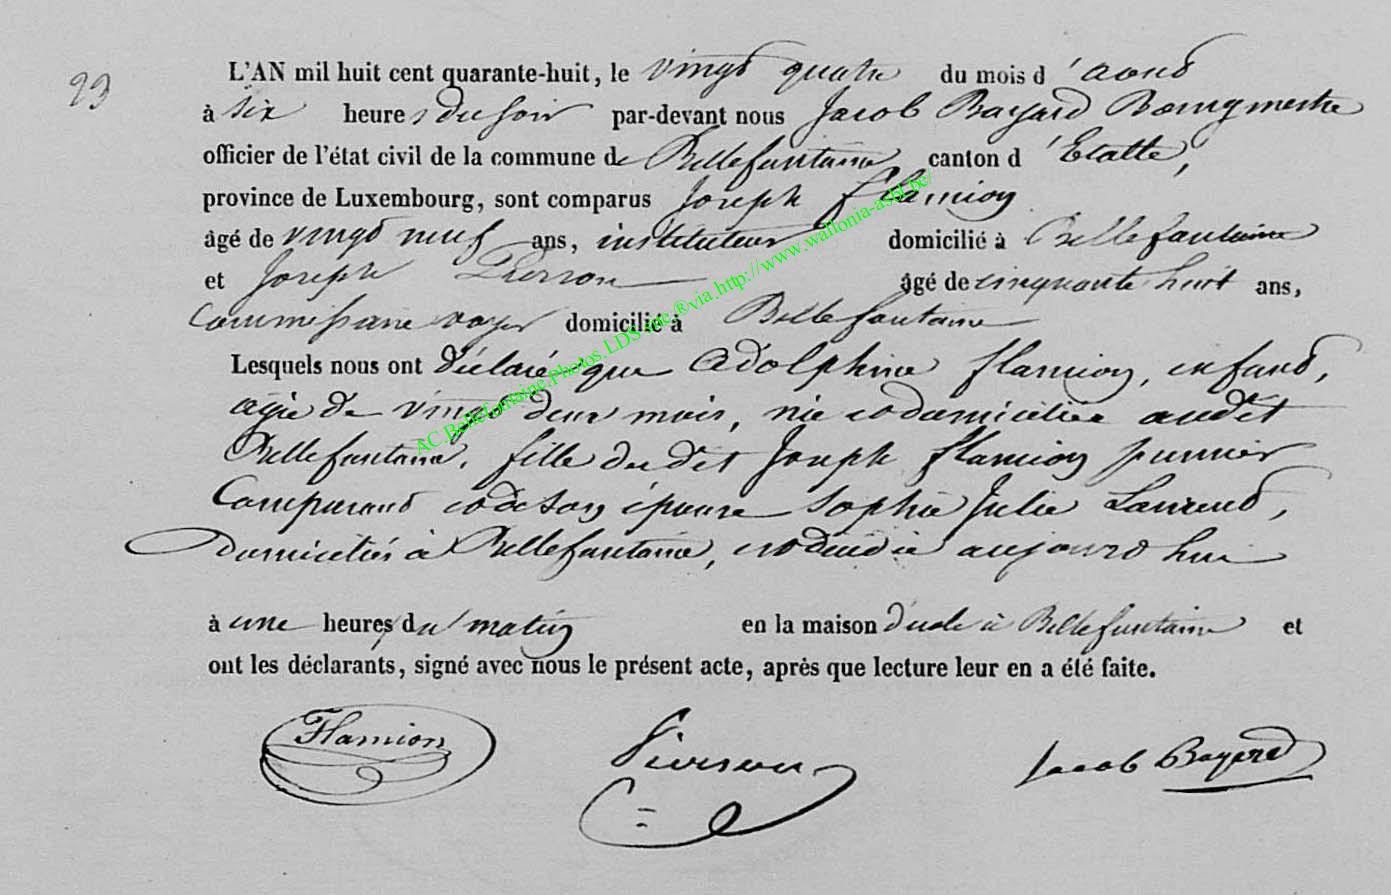 23
L'AN mil huit cent quarante-huit, le vingt quatre du mois d'aout
à six heures du soir par-devant nous Jacob Bayard Bourgmestre
officier de l'état civil de la commune de Bellefontaine canton d'Etalle,
province de Luxembourg, sont comparus Joseph Flamion
âgé de vingt neuf ans, instituteur domicilié à Bellefontaine
et Joseph Pierson âgé de cinquante huit ans,
Commissaire voyer domicilié à Bellefontaine
Lesquels nous ont déclaré que Adolphine Flamion, enfant,
agée de vingt deux mois, née et domiciliée audit
Bellefontaine, fille dudit Joseph Flamion premier
Comparant et de son épouse Sophie Julie Laurent,
Domiciliés à Bellefontaine, est décédée aujourd'hui
à une heures du matin en la maison d'école à Bellefontaine et
ont les déclarants, signé avec nous le présent acte, après que lecture leur en a été faite.
Flamion Pierson Jacob Bayard
AC.Bellefontaine.Photos.LDS.inc.®via.http://www.wallonia-asbl.be/